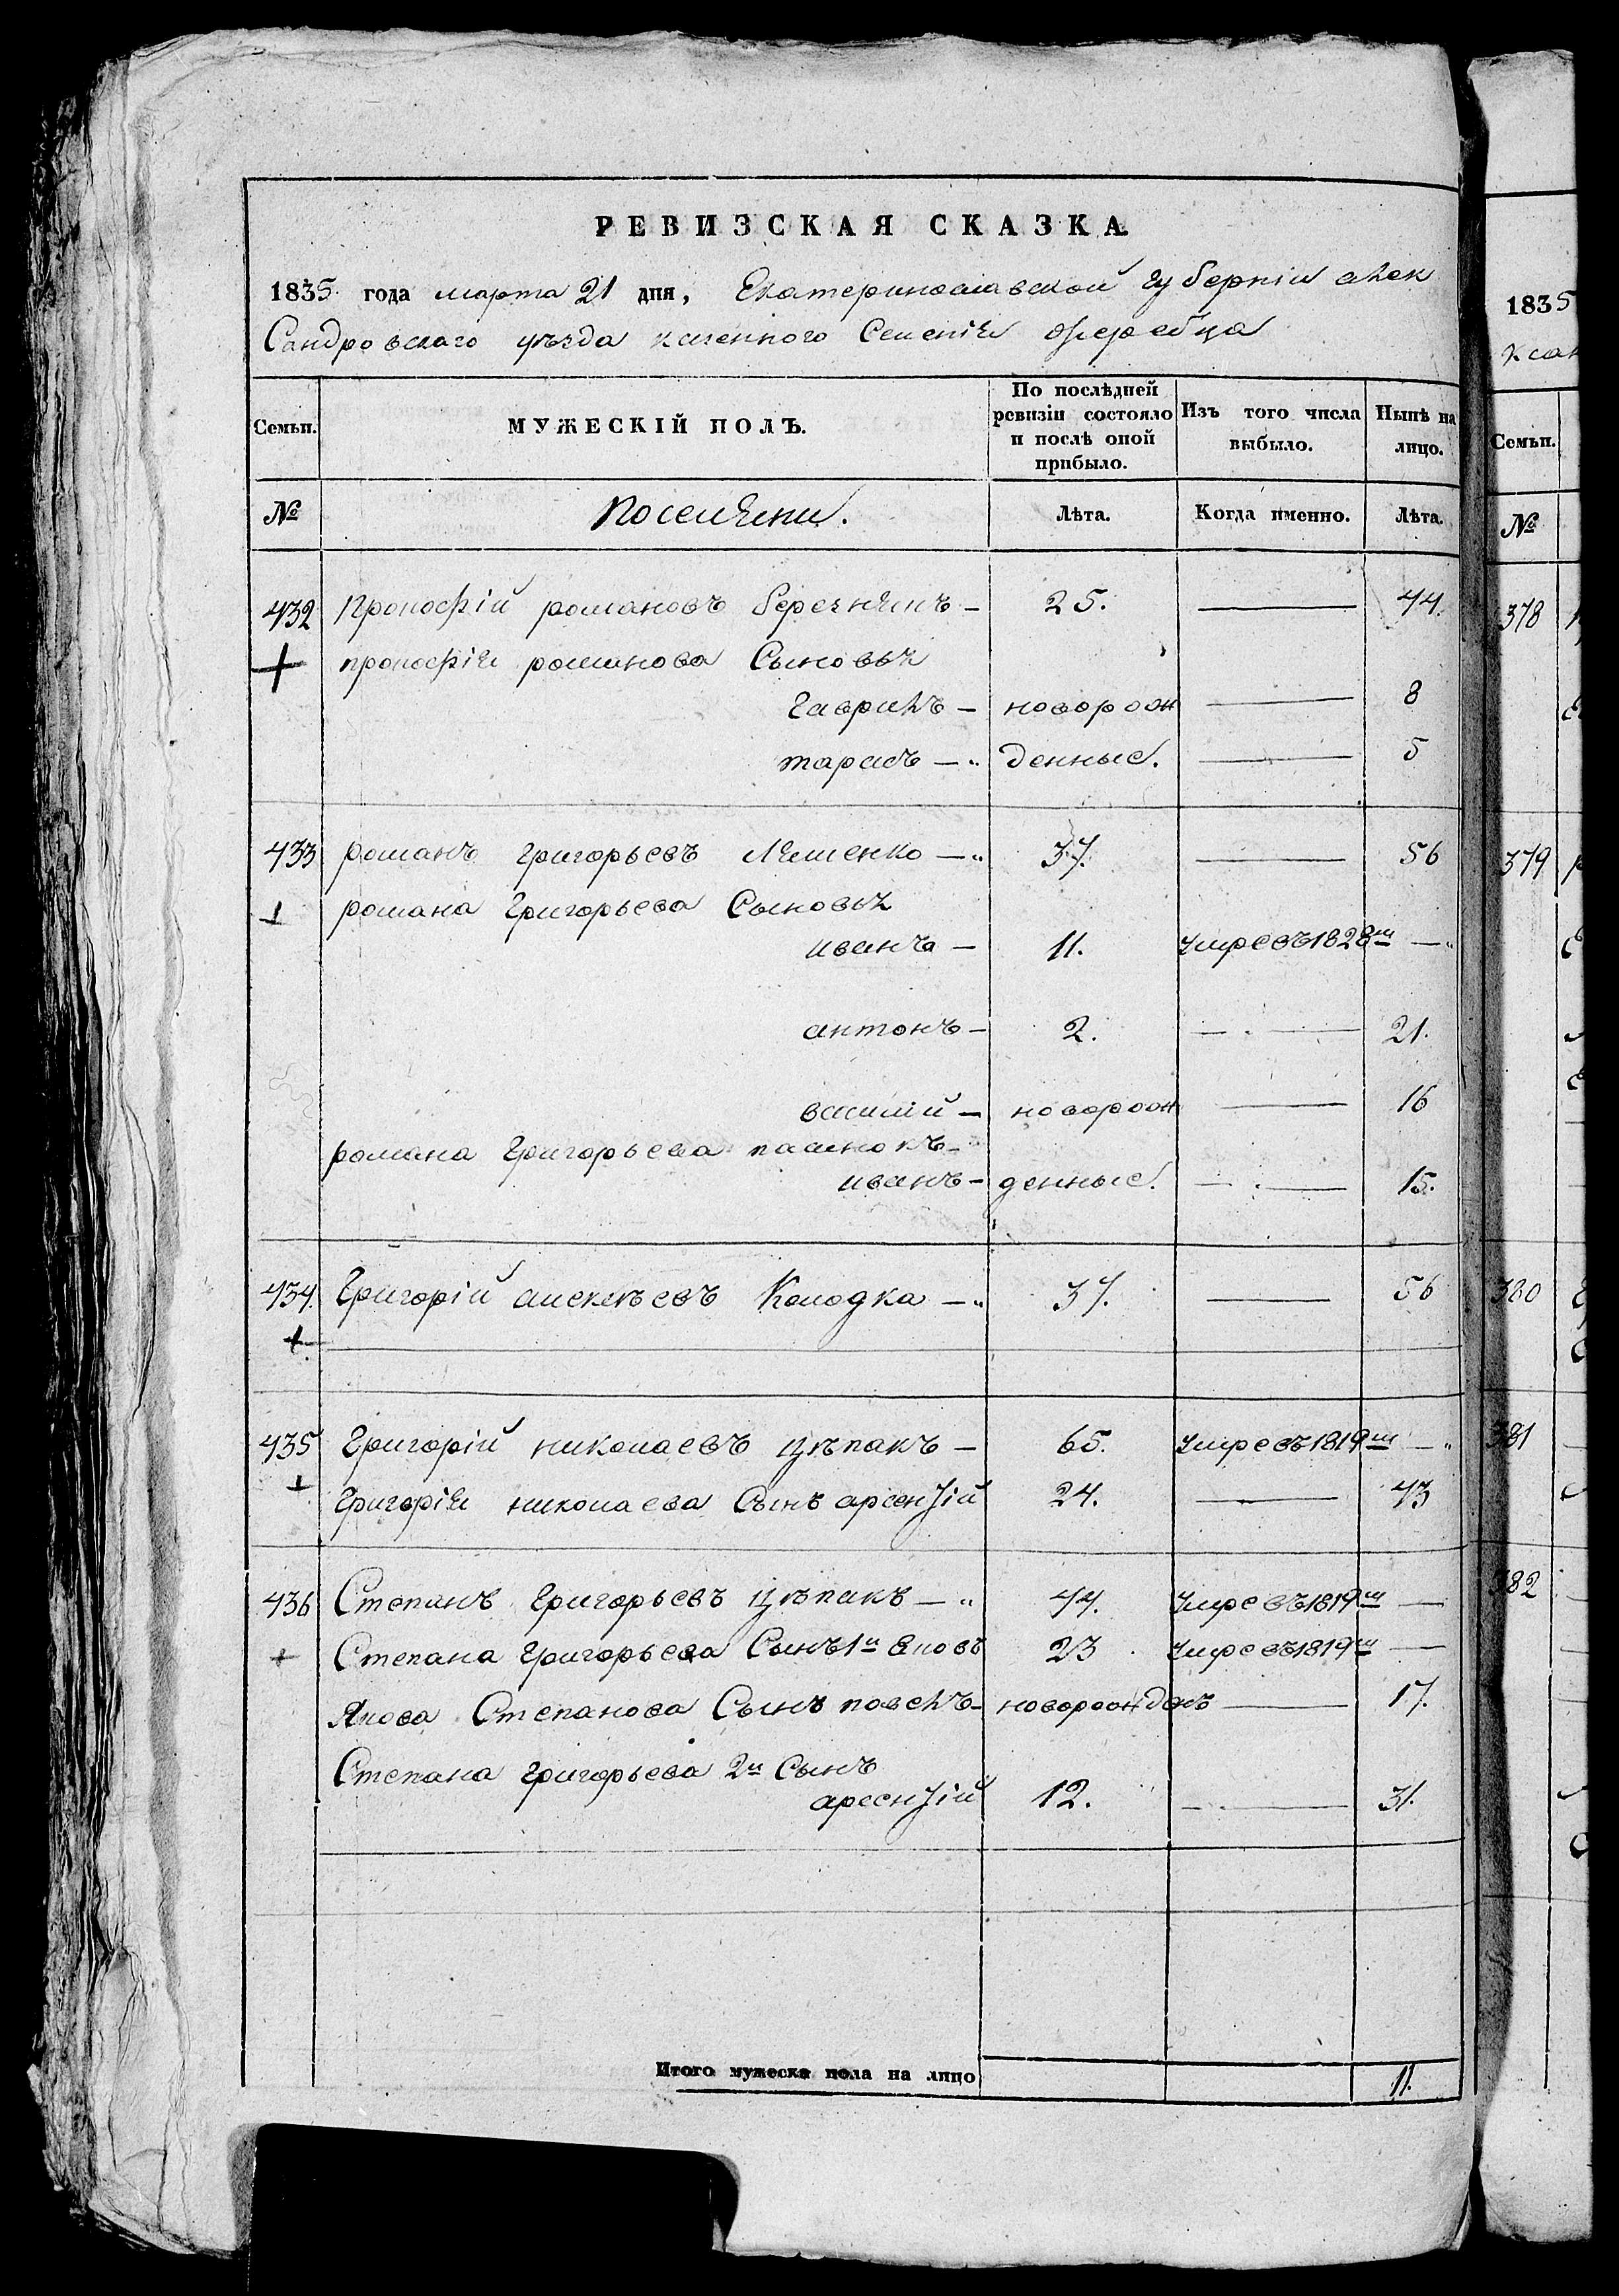 РЕВИЗСКАЯ СКАЗКА.
1835 года марта 21 дня, Екатеринославской губернiи алек
Сандровскаго уѣзда казенного Селенiя жеребца
Семьи. МУЖЕСКIЙ ПОЛЪ. По послѣдней ревизiи состояло и послѣ оной прибыло. Изъ того числа выбыло. Нынѣ на лицо.
№ Поселяни. Лѣта. Когда именно. Лѣта.
432 Прокофiй романовъ 25. — 44.
прокофiя романова Сыновья
гаврилъ — новорож — 8
тарасъ — денные. — 5
433 романъ григорьевъ Ляшенко — 37. — 56
романа григорьева Сыновья
иванъ — 11. умре въ 1828м —
антонъ — 2. — 21.
василiй — новорож — 16
романа григорьева пасынокъ
иванъ — денные. — 15.
434. Григорiй алексѣевъ Колодка — 37. — 56
435 Григорiй николаевъ цѣпакъ — 65. умре въ 1819м —
григорiя николаева Сынъ арсенҭiй 24. — 43
436 Степанъ григорьевъ цѣпакъ — 44. умре въ 1819м —
Степана григорьева Сынъ 1й Яковъ 23 умре въ 1819м —
Якова Степанова Сынъ павелъ — новорожденъ — 17.
Степана григорьева 2й Сынъ
арсенҭiй 12. — 31.
Итого мужеска пола на лицо 11.
1835
ксан
Семьи.
№
378
379
380
381
382